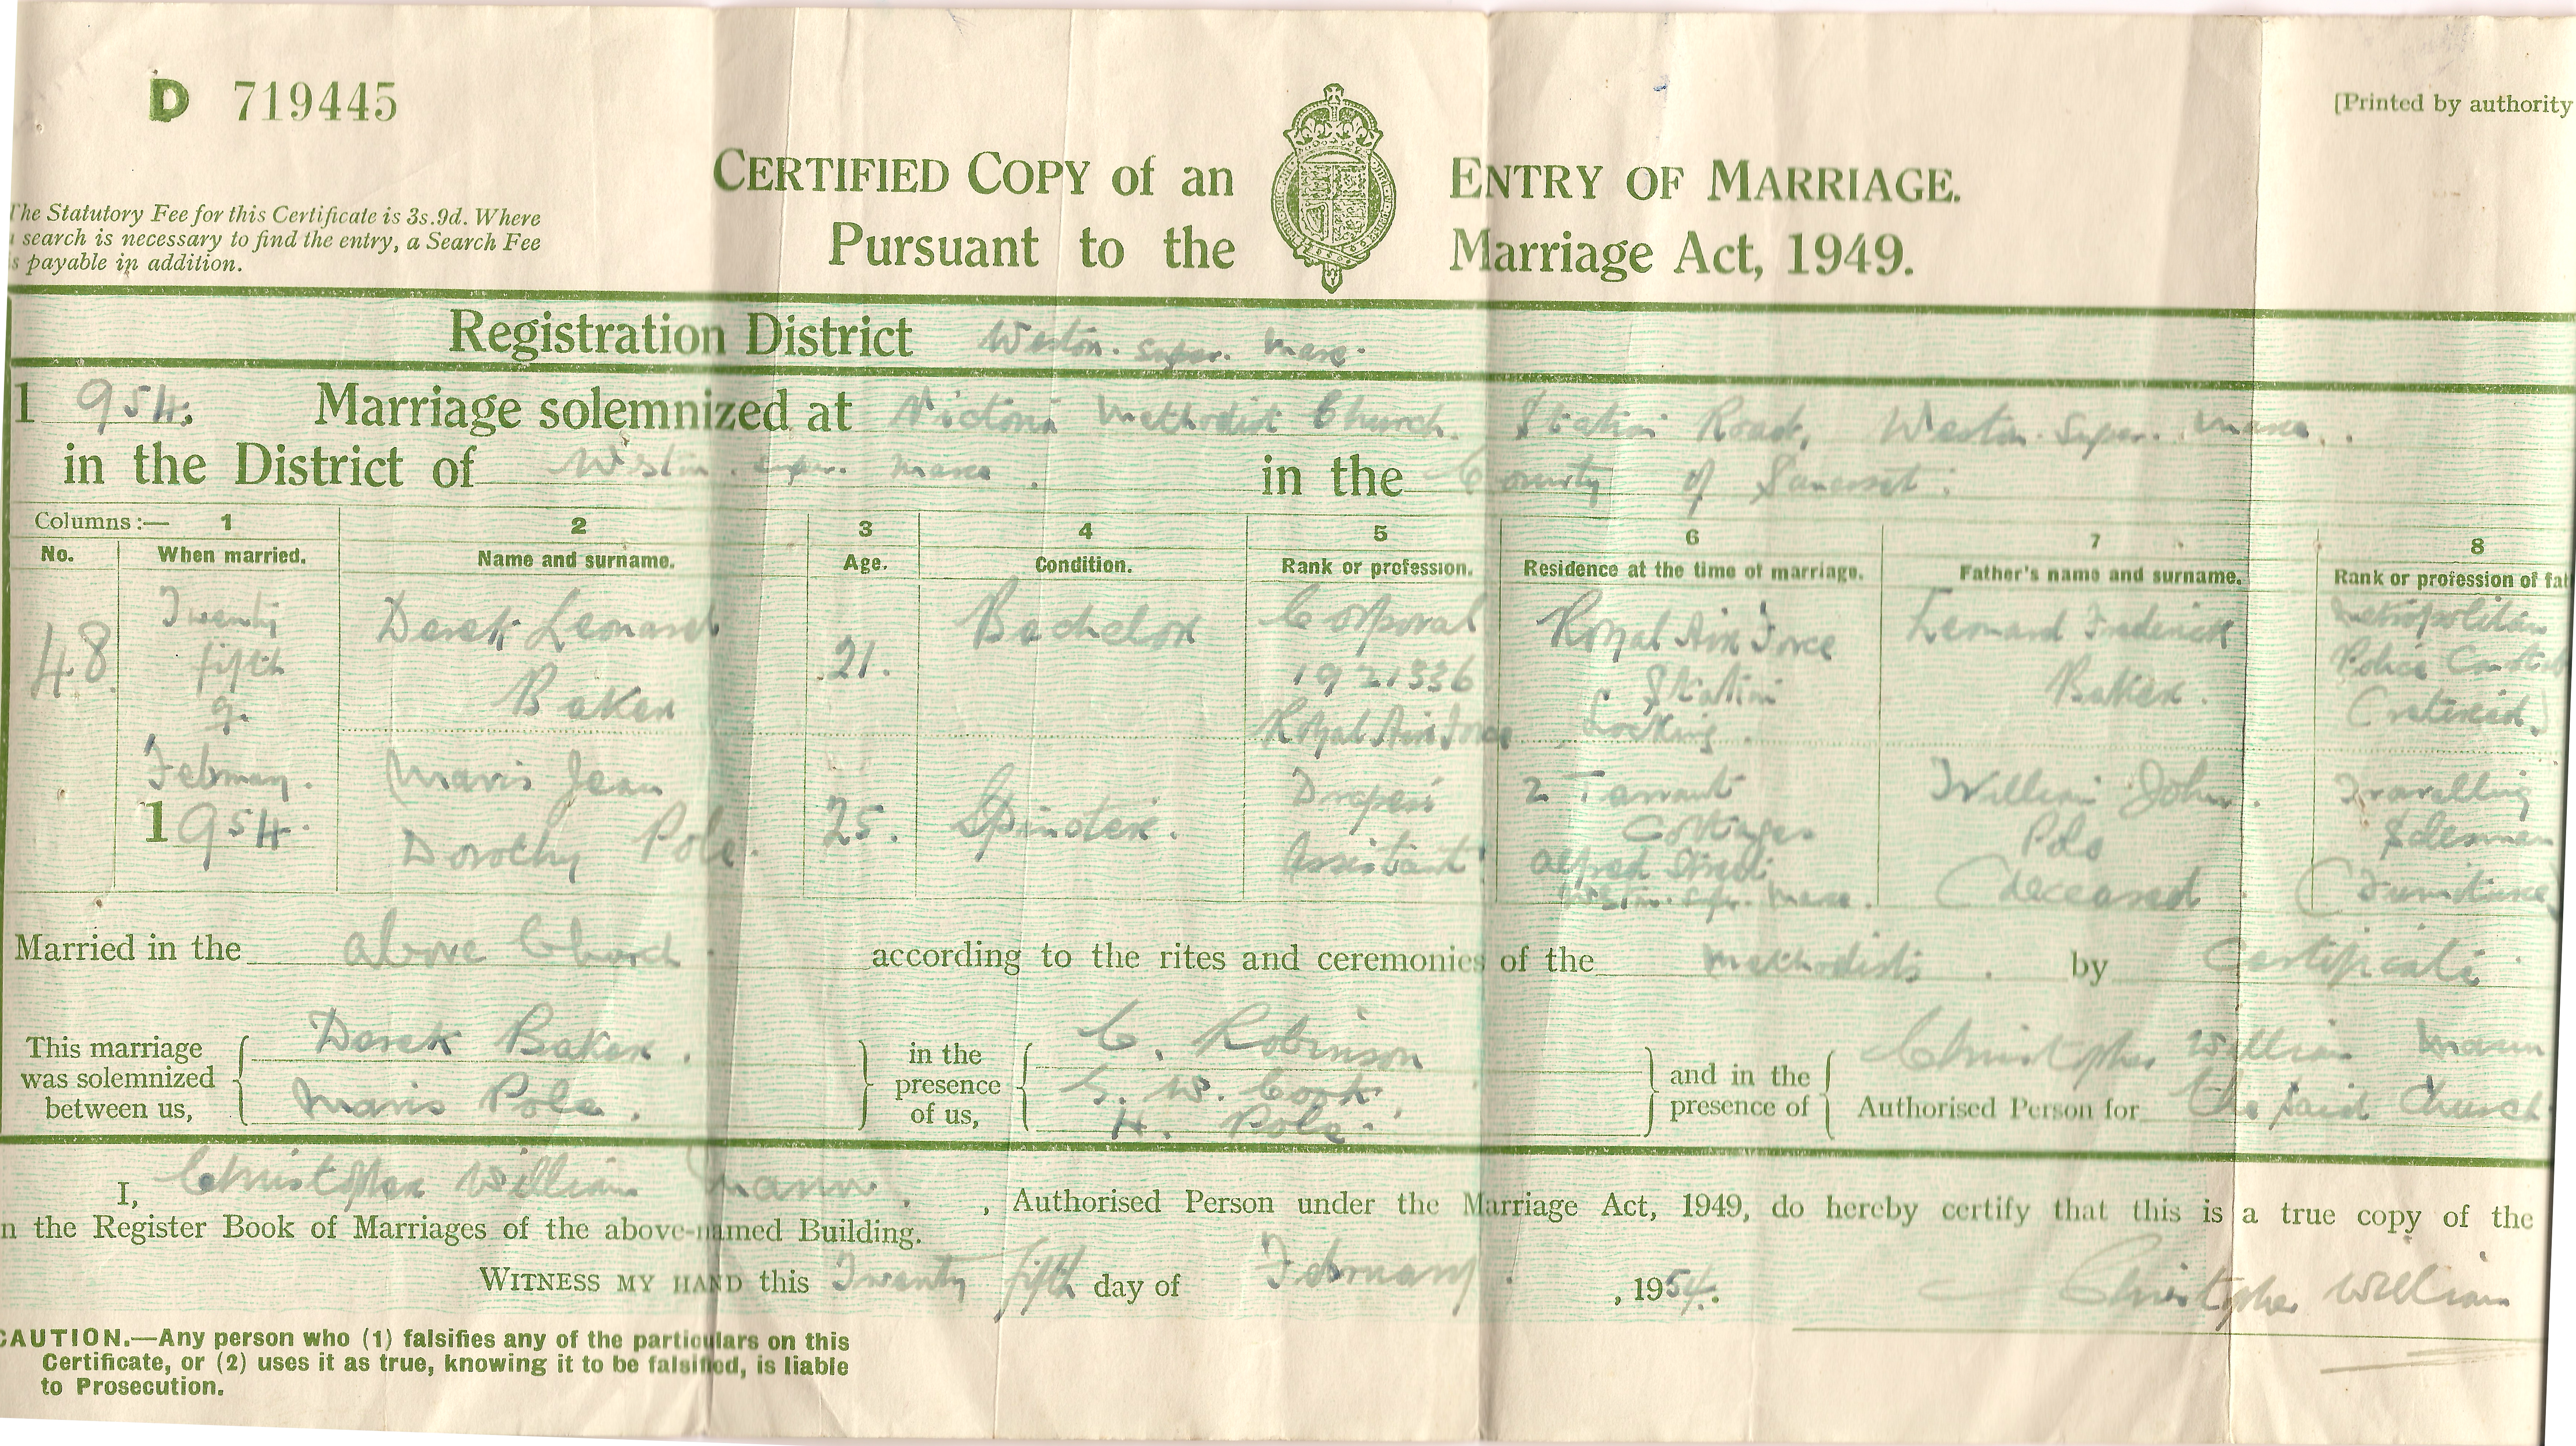 D 719445
[Printed by authority
CERTIFIED COPY of an ENTRY OF MARRIAGE.
Pursuant to the Marriage Act, 1949.
The Statutory Fee for this Certificate is 3s.9d. Where
search is necessary to find the entry, a Search Fee
is payable in addition.
Registration District Weston. super. mare.
1954. Marriage solemnized at Victoria Methodist Church. Station Road, Weston. super. mare.
in the District of Weston. super. mare. in the County of Somerset.
Columns:— 1 2 3 4 5 6 7 8
No. When married. Name and surname. Age. Condition. Rank or profession. Residence at the time of marriage. Father's name and surname. Rank or profession of fat
48 Twenty fifth of February. 1954. Derek Leonard Baker 21. Bachelor Corporal 1921336 Royal Air Force Royal Air Force Station Locking. Leonard Frederick Baker. Metropolitan Police Constab (retired.)
Mavis Jean Dorothy Pole. 25. Spinster. Drapers Assistant 2 Tarrant Cottages Alfred Street Weston. super. mare. William John Pole (deceased) Travelling Salesman (Furniture)
Married in the above Church. according to the rites and ceremonies of the Methodists. by Certificate
This marriage was solemnized between us, Derek Baker. Mavis Pole. in the presence of us, C. Robinson G. W. Cook. H. Pole. and in the presence of Christopher William Mann Authorised Person for the said Church
I, Christopher William Mann. , Authorised Person under the Marriage Act, 1949, do hereby certify that this is a true copy of the
n the Register Book of Marriages of the above-named Building.
WITNESS MY HAND this Twenty fifth day of February. , 1954.
Christopher William
CAUTION.—Any person who (1) falsifies any of the particulars on this
Certificate, or (2) uses it as true, knowing it to be falsified, is liable
to Prosecution.